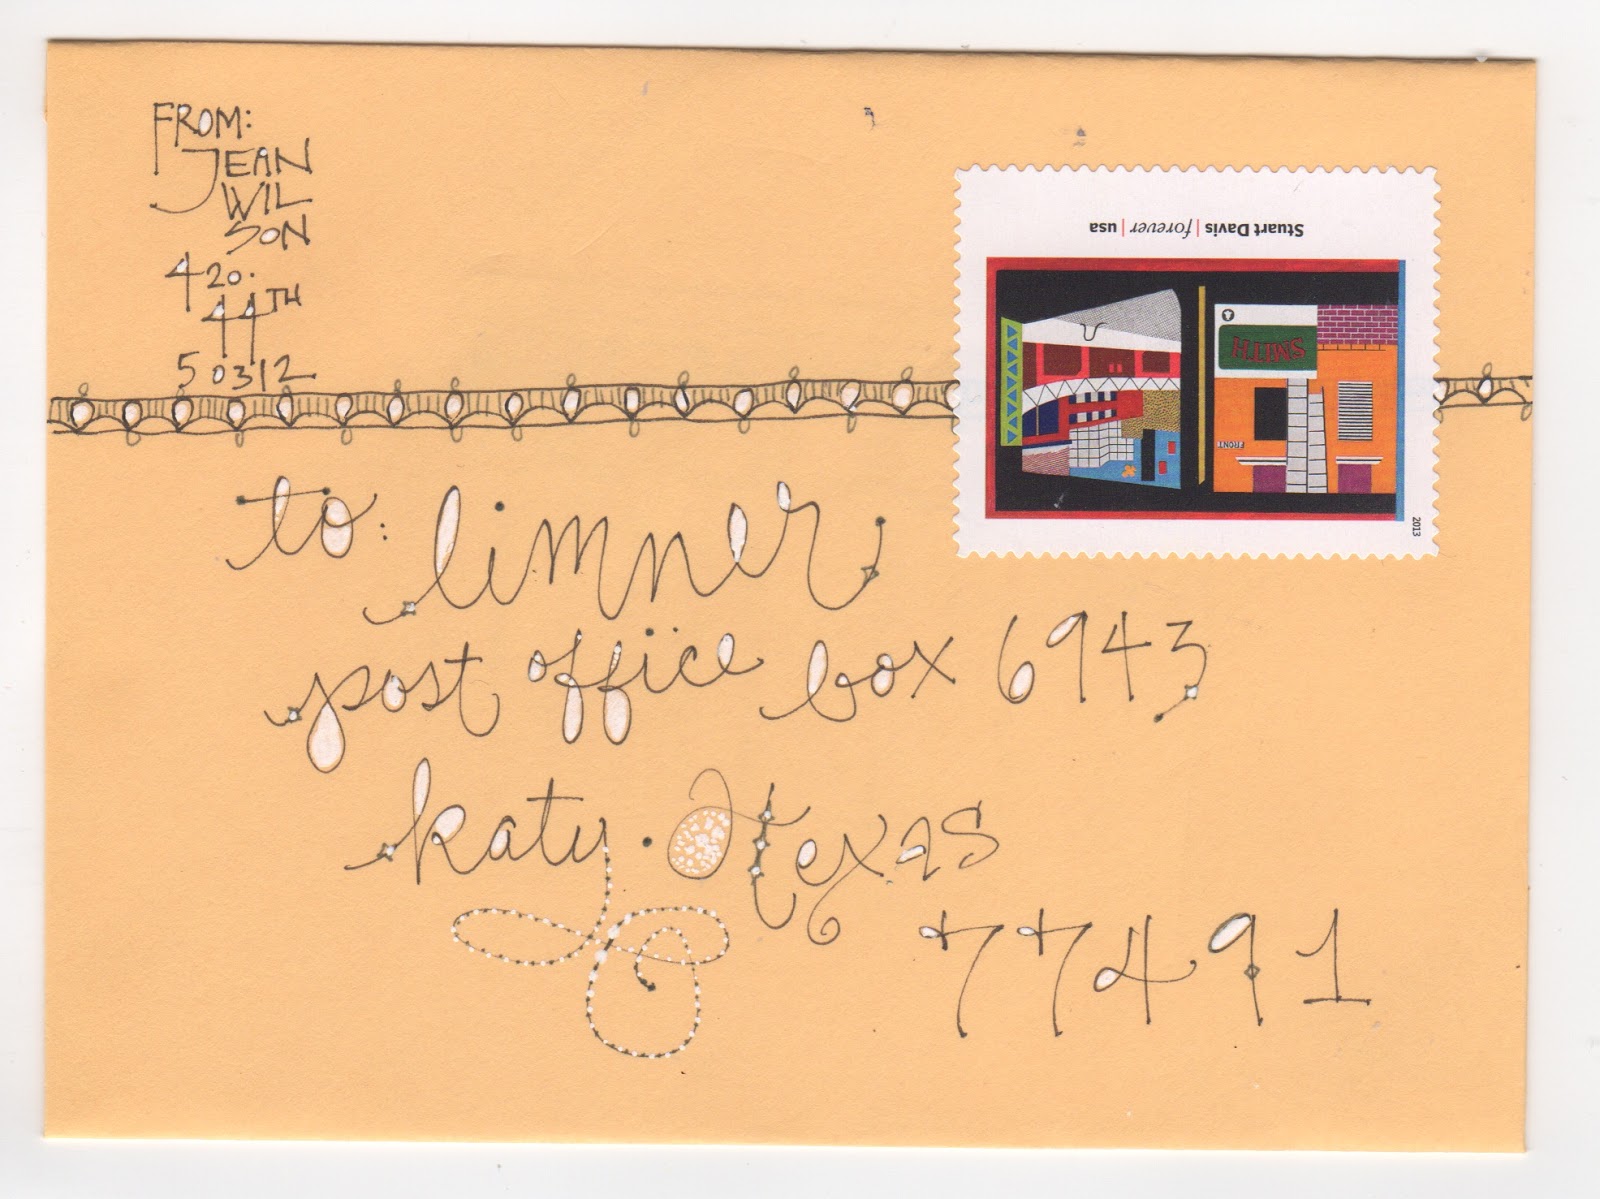 FROM:
JEAN
WIL
SON
420.
44TH
50312
Stuart Davis | forever | usa
SMITH
FRONT
2013
to: limner
post office box 6943
katy. texas
77491